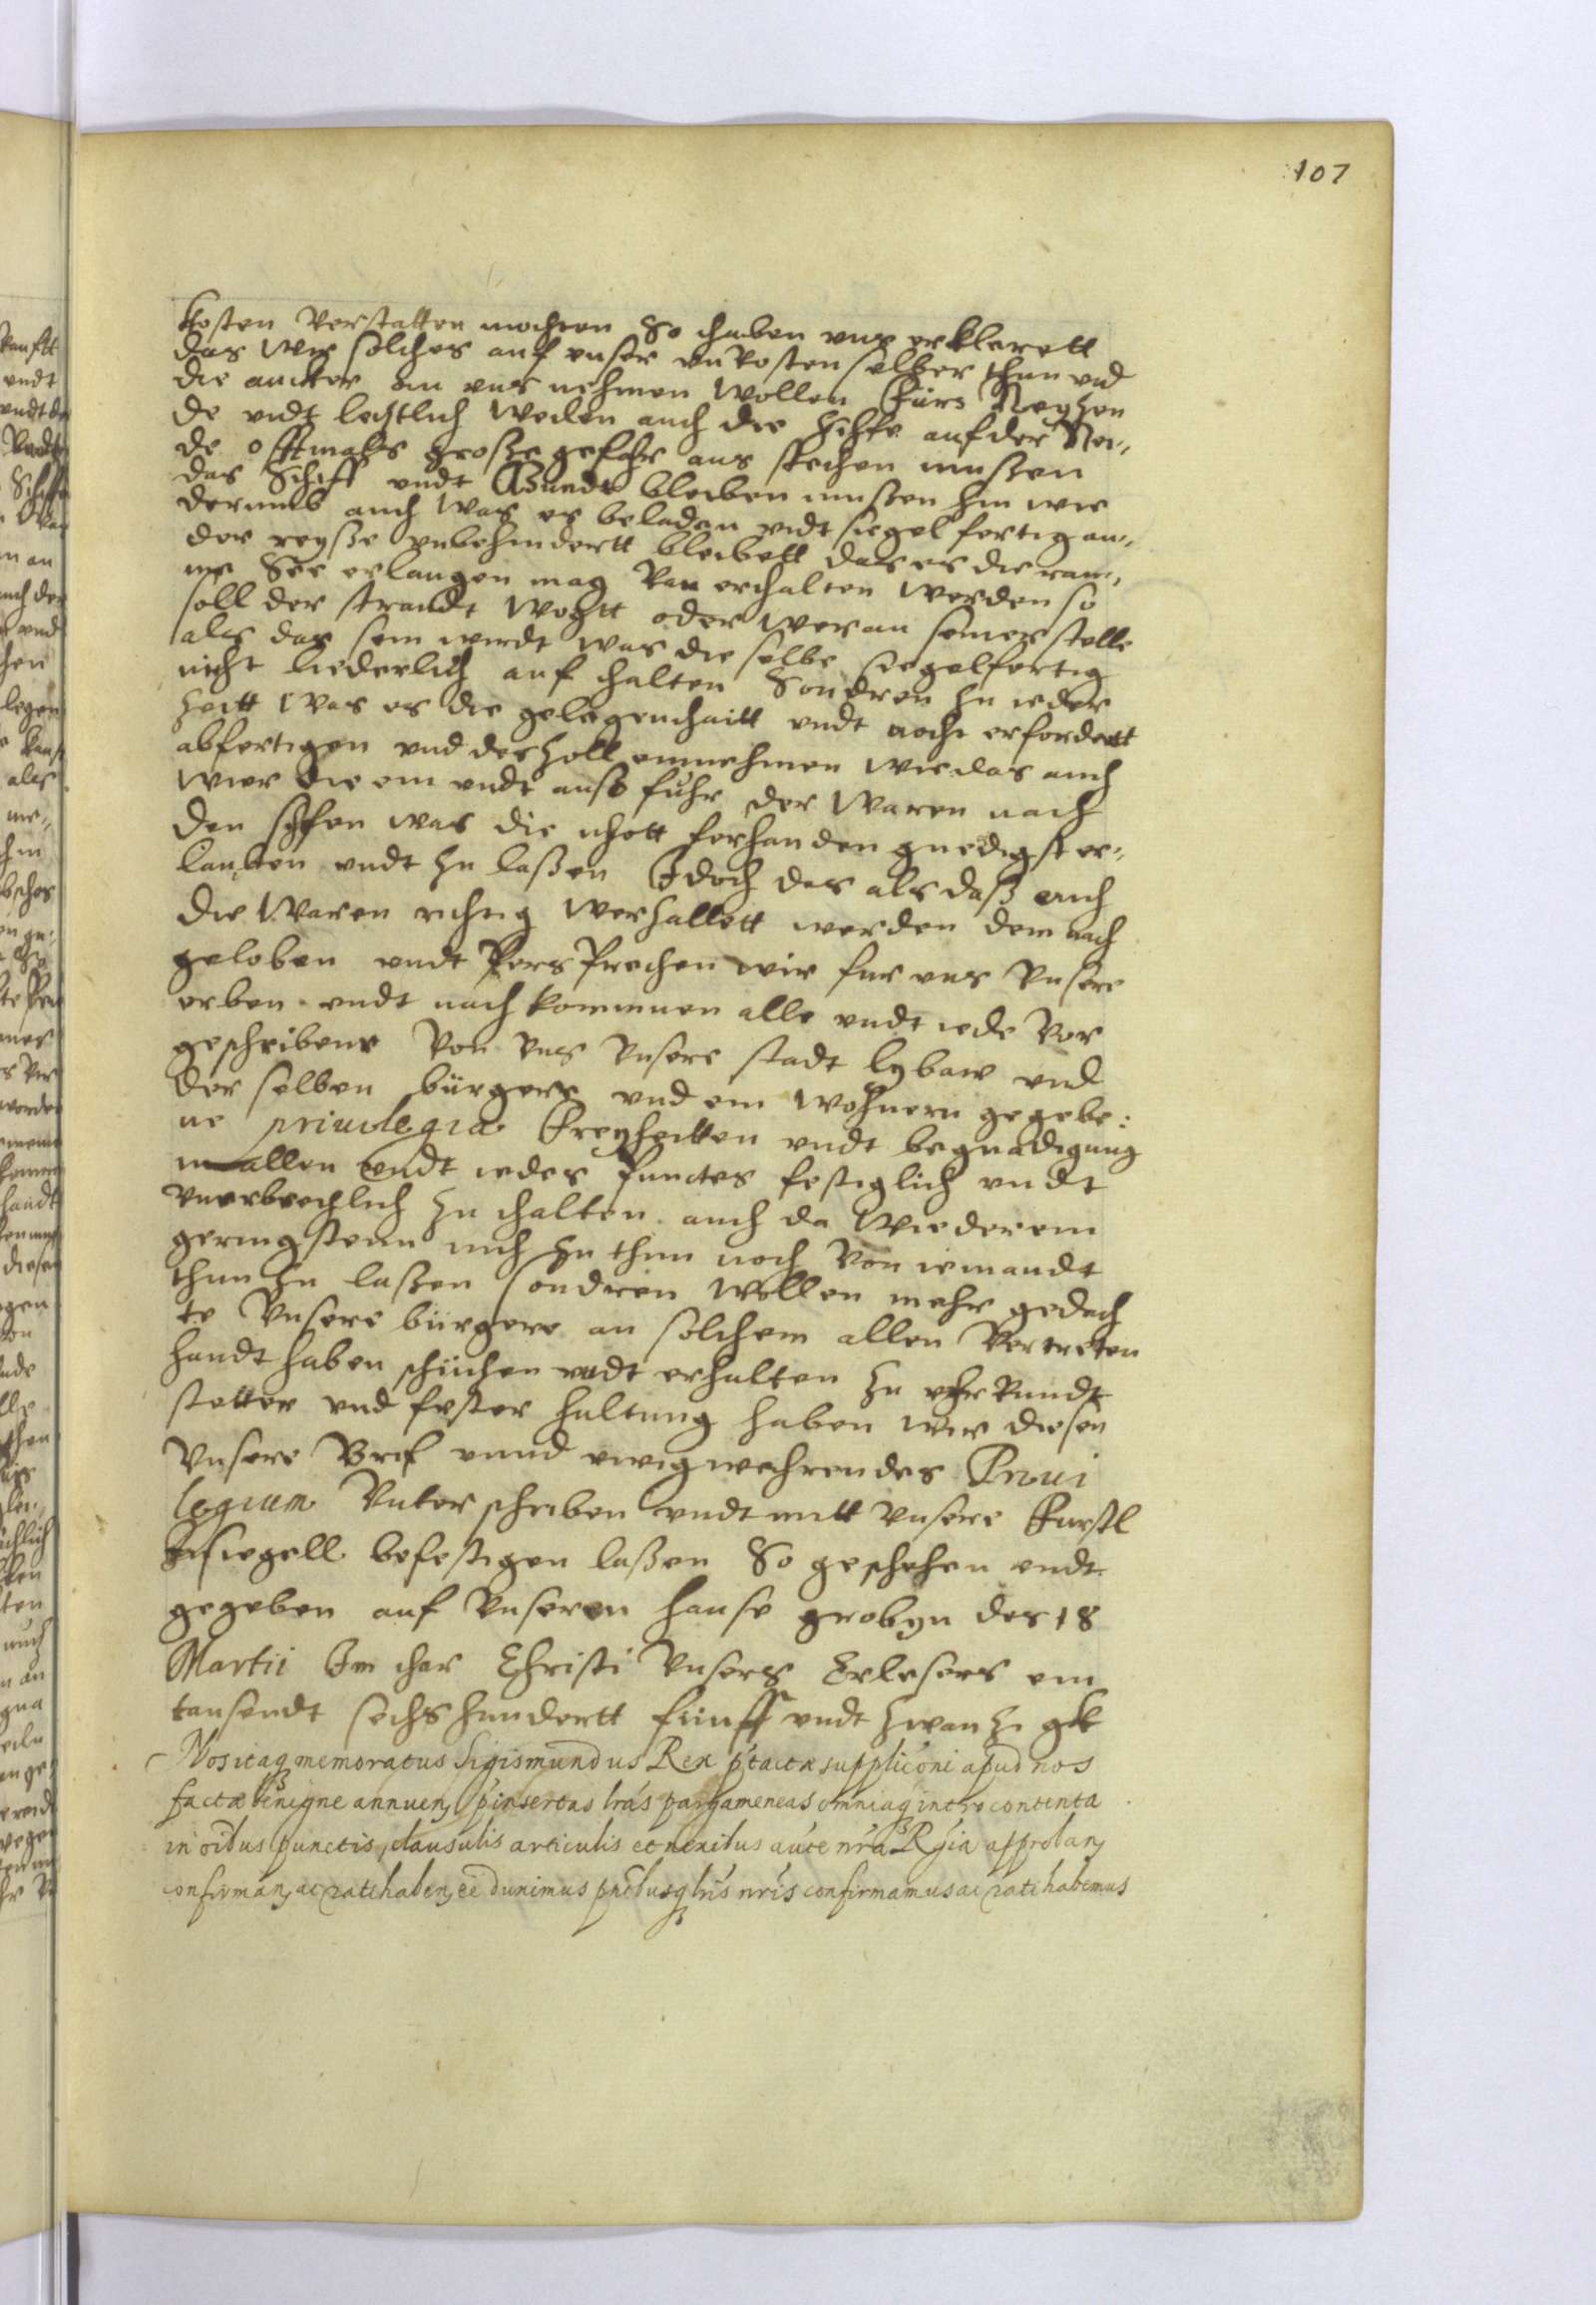 107
Kosten Verstatten mochten So haben wir erklerett
das wir solches auf unser unkosten selber thun und
die ancker an uns nehmen wollen
de undt letztlich weilen auch die Schiffe auf der Rei„
de offtmals große gefahr aus stehen mußen
das Schiff undt bleiben mußen hin wie
derumb auch was es beladen undt siegel fertig an„
der reyße unbehindertt bleibett das es die ram„
me See erlangen mag kan erhalten werden so
soll der strandt Vogtt oder wer an seiner stelle
als das sein wirdt was die selbe siegelfertig
nicht liederlich auf halten Sondren zu ieder
Zeitt was es die gelegenhaitt undt noht erfordertt
abfertigen und der Zoll einnehmen wie das auch
wier die ein undt auß fuhr der Waren nach
den was die nhott forhanden gnedigst er„
lauben undt zu laßen Idoch das als daß auch
die Waren richtig Verzollett werden dem nach
geloben undt Versprechen wir fur uns Unsere
erben undt nachkommen alle undt iede Vor
geschribene Von Uns Unsere stadt lybaw und
der selben bürgere und ein Wohnern gegebe:
ne priuilegia Freyheitten undt begnadigung
in allen undt iedes punctes festiglich undt
Unverbrochlich zu halten auch da Wieder em
geringstenn nich zu thun noch Von iemandt
thun zu laßen sondren Wollen mehr gedach
te Unsere bürgere an solchem allen Vertreten
handt haben schüzen undt erhalten zu uhrkundt
stetter und fester haltung haben wir diesen
Unsere Brif unnd ewig wehrendes Priui
legium Unterschriben undt mitt Unsere Furstl
Insiegell befestigen laßen So geschehen undt
gegeben auf Unseren Hause grobyn des 18
Martii Im ihar Christi Unsers Erlesers ein
tausendt sechshundertt fünff undt zwanzigk
Nos itaq memoratus Sigismundus Rex ptactæ suppliconi apud nos
factæ benigne annuen, pinsertas lrás pargameneas omniaq intro contenta
in oibus punctis, clausulis articulis et nexibus aute nra Rgia approban,
confirman, ac ratihaben, dunimus pntibusq lris nris confirmamus ac ratihabemus